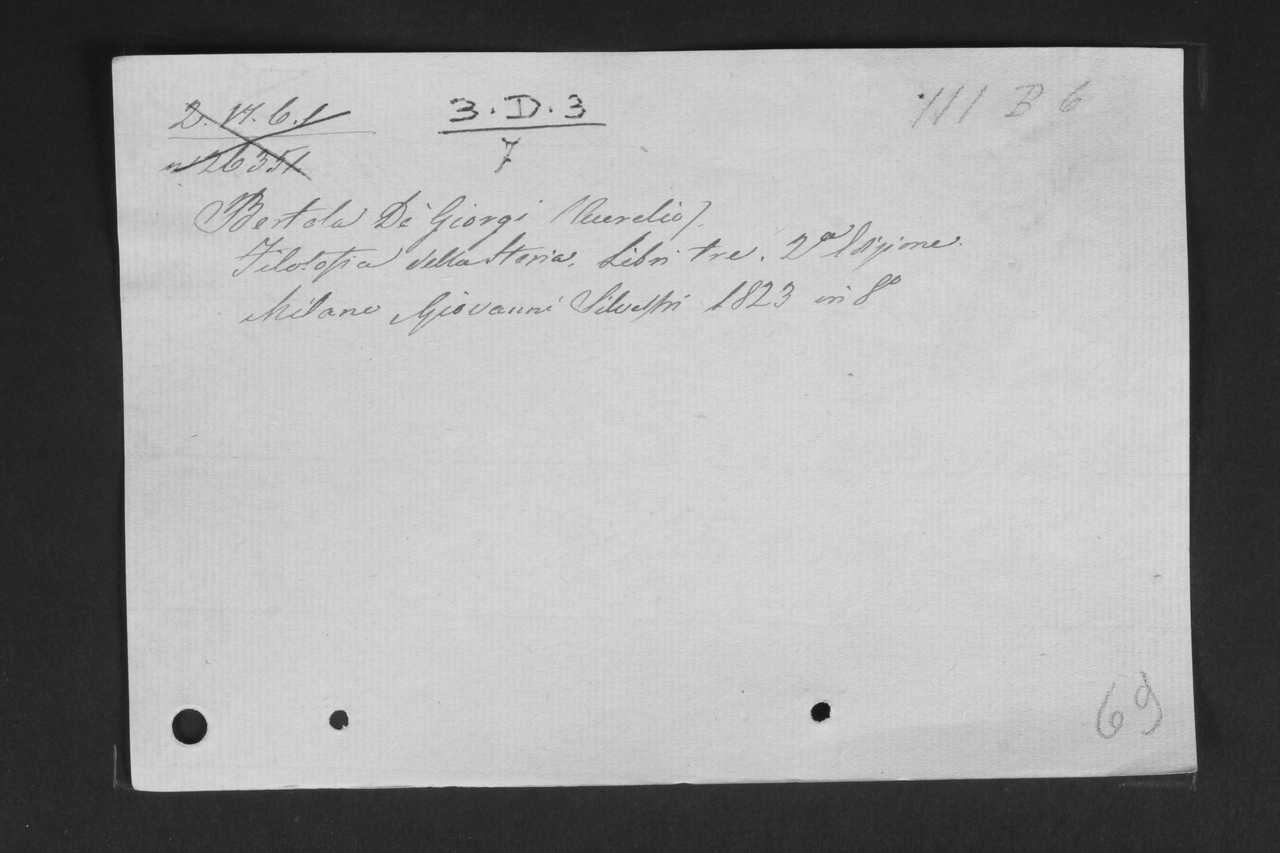 2. 17. 6. 1
3 . D . 3
III B 6
n° 26351
7
Bertola De' Giorgi (Aurelio).
Filosofia della Storia. Libri tre. 2ª Edizione.
Milano Giovanni Silvestri 1823 in 8°
69